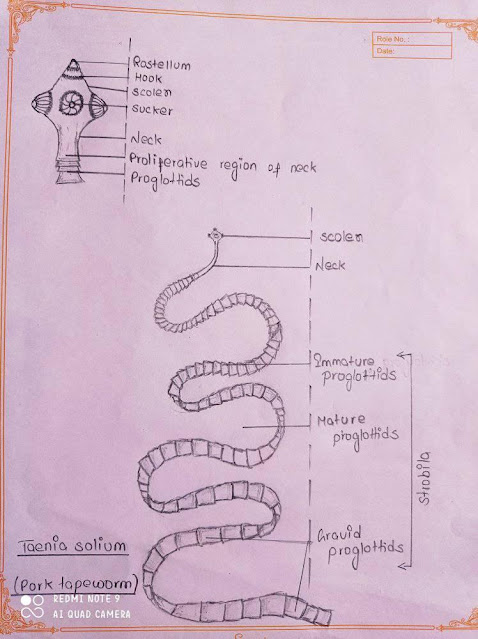 Role No. :
Date:
Rostellum
Hook
Scolen
Sucker
Neck
Proliperative region of neck
Proglottids
Scolen
Neck
Immature
proglottids
Mature
proglottids
Strobila
Gravid
proglottids
Taenia solium
(Pork tapeworm)
REDMI NOTE 9
AI QUAD CAMERA